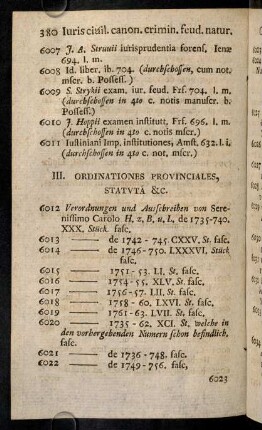 380 Iuris ciuil. canon. crimin. feud. natur.
6007 J. A. Struuii iurisprudentia forens. Ienæ
694. l. m.
6008 Id. liber. ib. 704. (durchschossen, cum not.
mscr. b. Possess.)
6009 S. Strykii exam. iur. feud. Frf. 704. l. m.
(durchschossen in 4to c. notis manuscr. b.
Possess.)
6010 J. Hoppii examen institutt. Frf. 696. l. m.
(durchschossen in 4to c. notis mscr.)
6011 Iustiniani Imp. institutiones, Amst. 632. l. i.
(durchschossen in 4to c. not. mscr.)
III. ORDINATIONES PROVINCIALES,
STATVTA &C.
6012 Verordnungen und Ausschreiben von Sere-
nissimo Carolo H. z. B. u. L. de 1735-740.
XXX. Stück. fasc.
6013 —— de 1742 - 745. CXXV. St. fasc.
6014 —— de 1746 - 750. LXXXVI. Stück
fasc.
6015 —— 1751 - 53. LI. St. fasc.
6016 —— 1754 - 55. XLV. St. fasc.
6017 —— 1756 - 57. LII. St. fasc.
6018 —— 1758 - 60. LXVI. St. fasc.
6019 —— 1761 - 63. LVII. St. fasc.
6020 —— 1735 - 62. XCI. St. welche in
den vorhergehenden Numern schon befindlich,
fasc.
6021 —— de 1736 - 748. fasc.
6022 —— de 1749 - 756. fasc,
6023